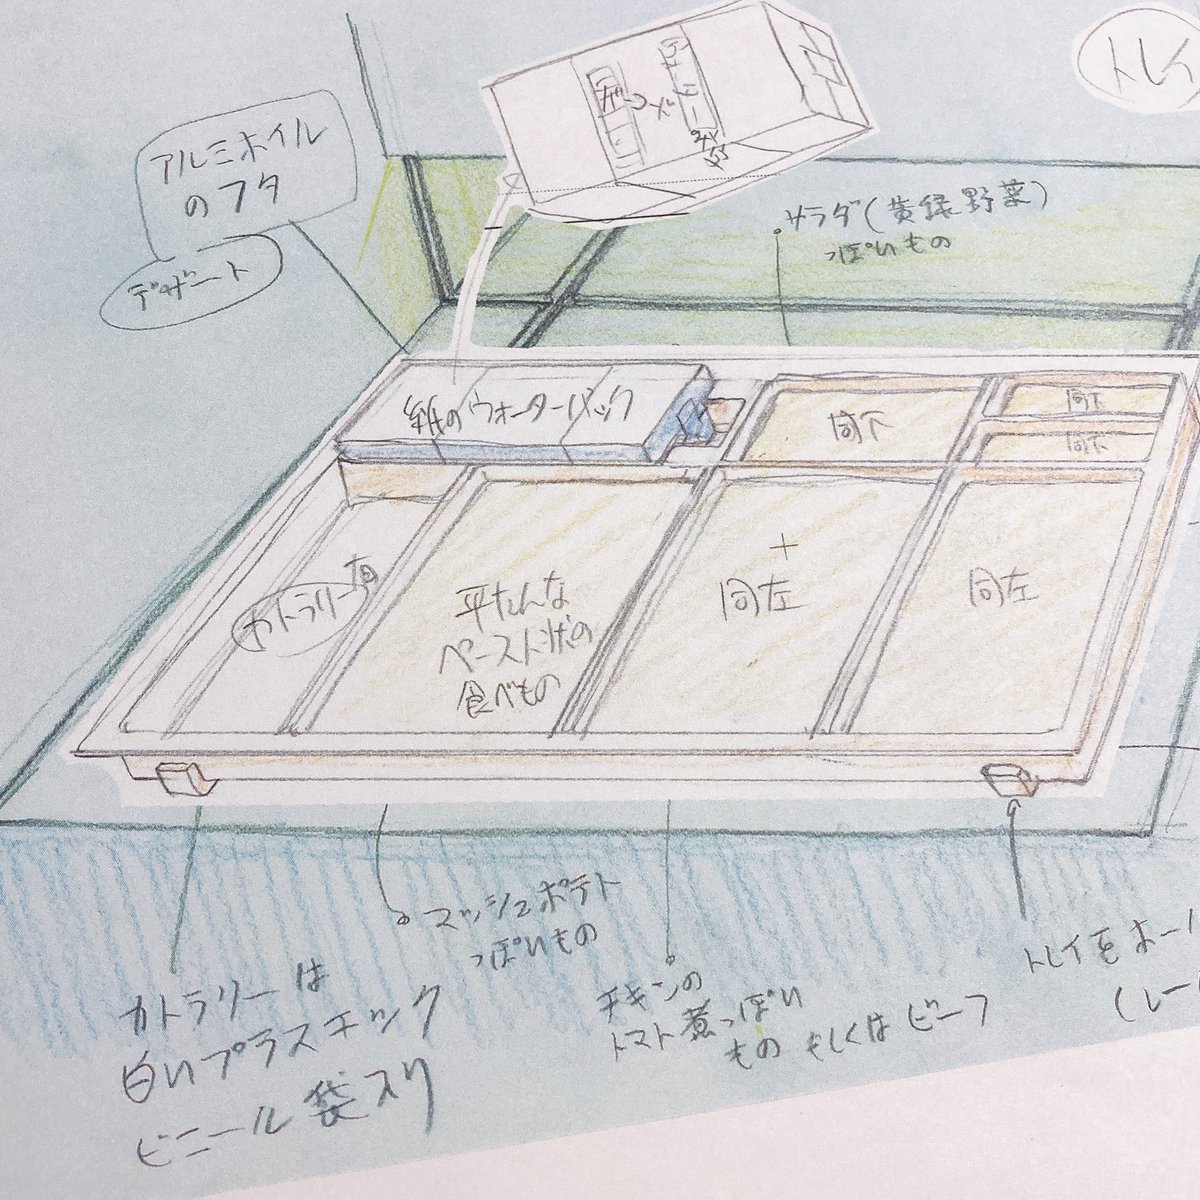 トレイ
アルミホイル
のフタ
デザート
サラダ(黄緑野菜)
っぽいもの
紙のウォーターパック
同下
同下
同下
カトラリー用
平たんな
ペースト状の
食べもの
+
同左
同左
マッシュポテト
っぽいもの
チキンの
トマト煮っぽい
もの もしくはビーフ
トレイをホール
(レール
カトラリーは
白いプラスチック
ビニール袋入り